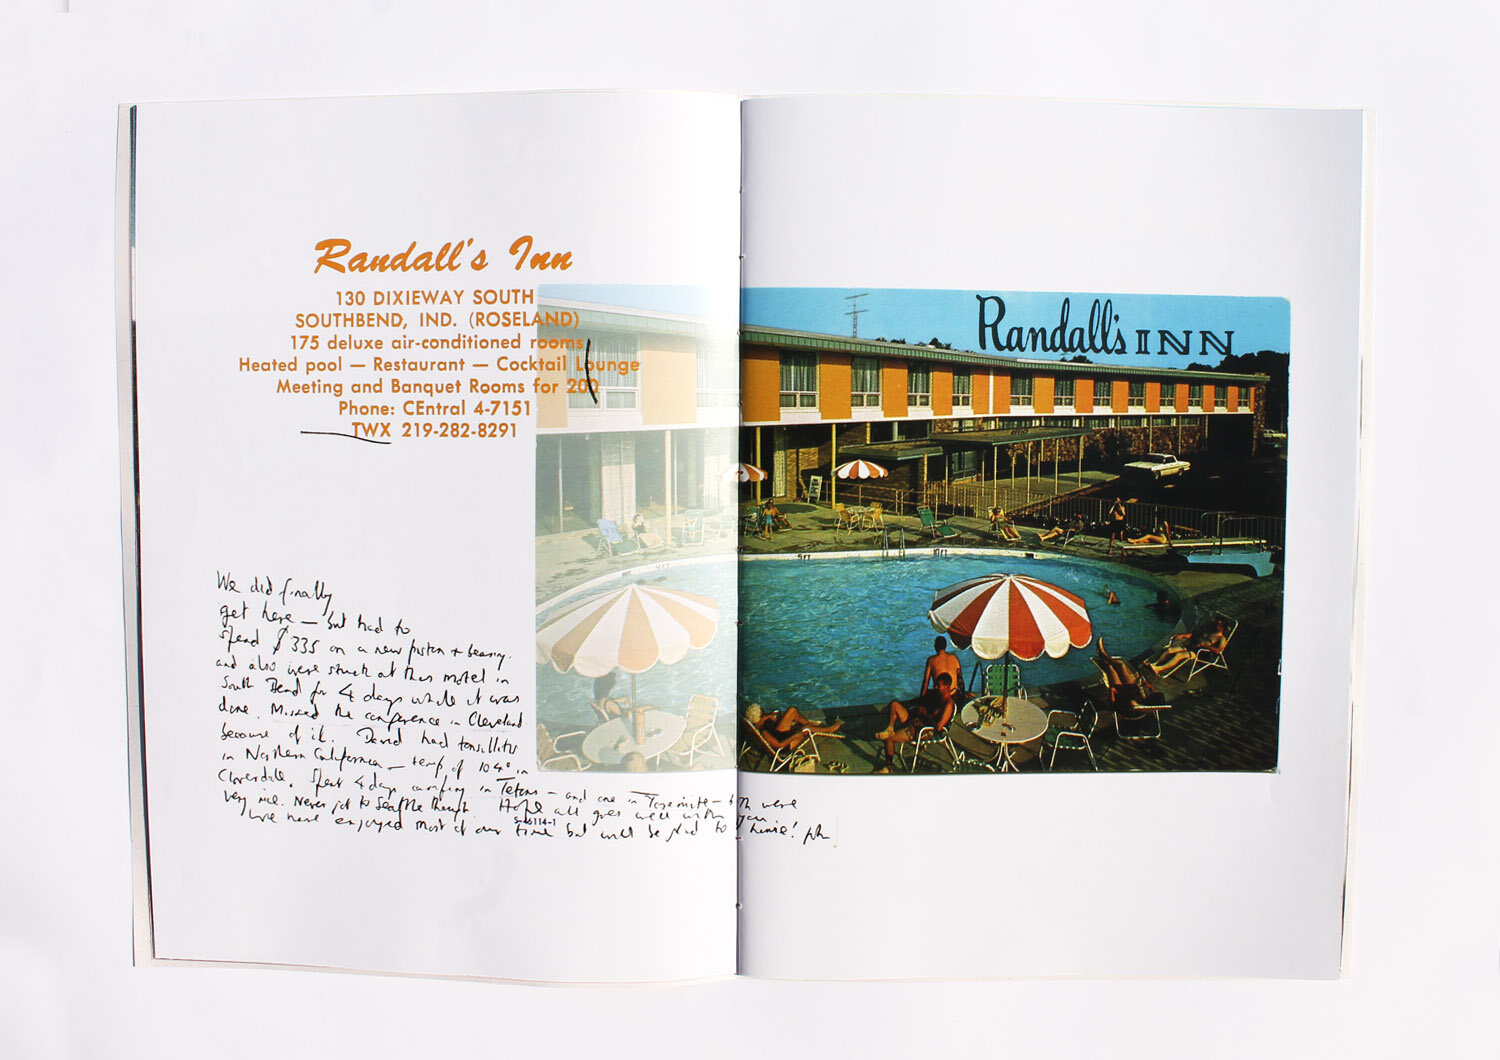 Randall's Inn
130 DIXIEWAY SOUTH
SOUTHBEND, IND. (ROSELAND)
175 deluxe air-conditioned rooms
Heated pool — Restaurant — Cocktail Lounge
Meeting and Banquet Rooms for 200
Phone: CEntral 4-7151
TWX 219-282-8291
Randall's INN
4FT
5FT
10FT
We did finally
get here — but had to
spend $335 on a new piston + bearing.
and also were stuck at this motel in
South Bend for 4 days while it was
done. Missed the conference in Cleveland
because of it. David had tonsillitis
in Northern California — temp of 104° in
Cloverdale. Spent 4 days camping in Tetons — and one in Yosemite — both were
very nice. Never got to Seattle though. Hope all goes well with you
S-46114-1
We have enjoyed most of our time but will be glad to home!